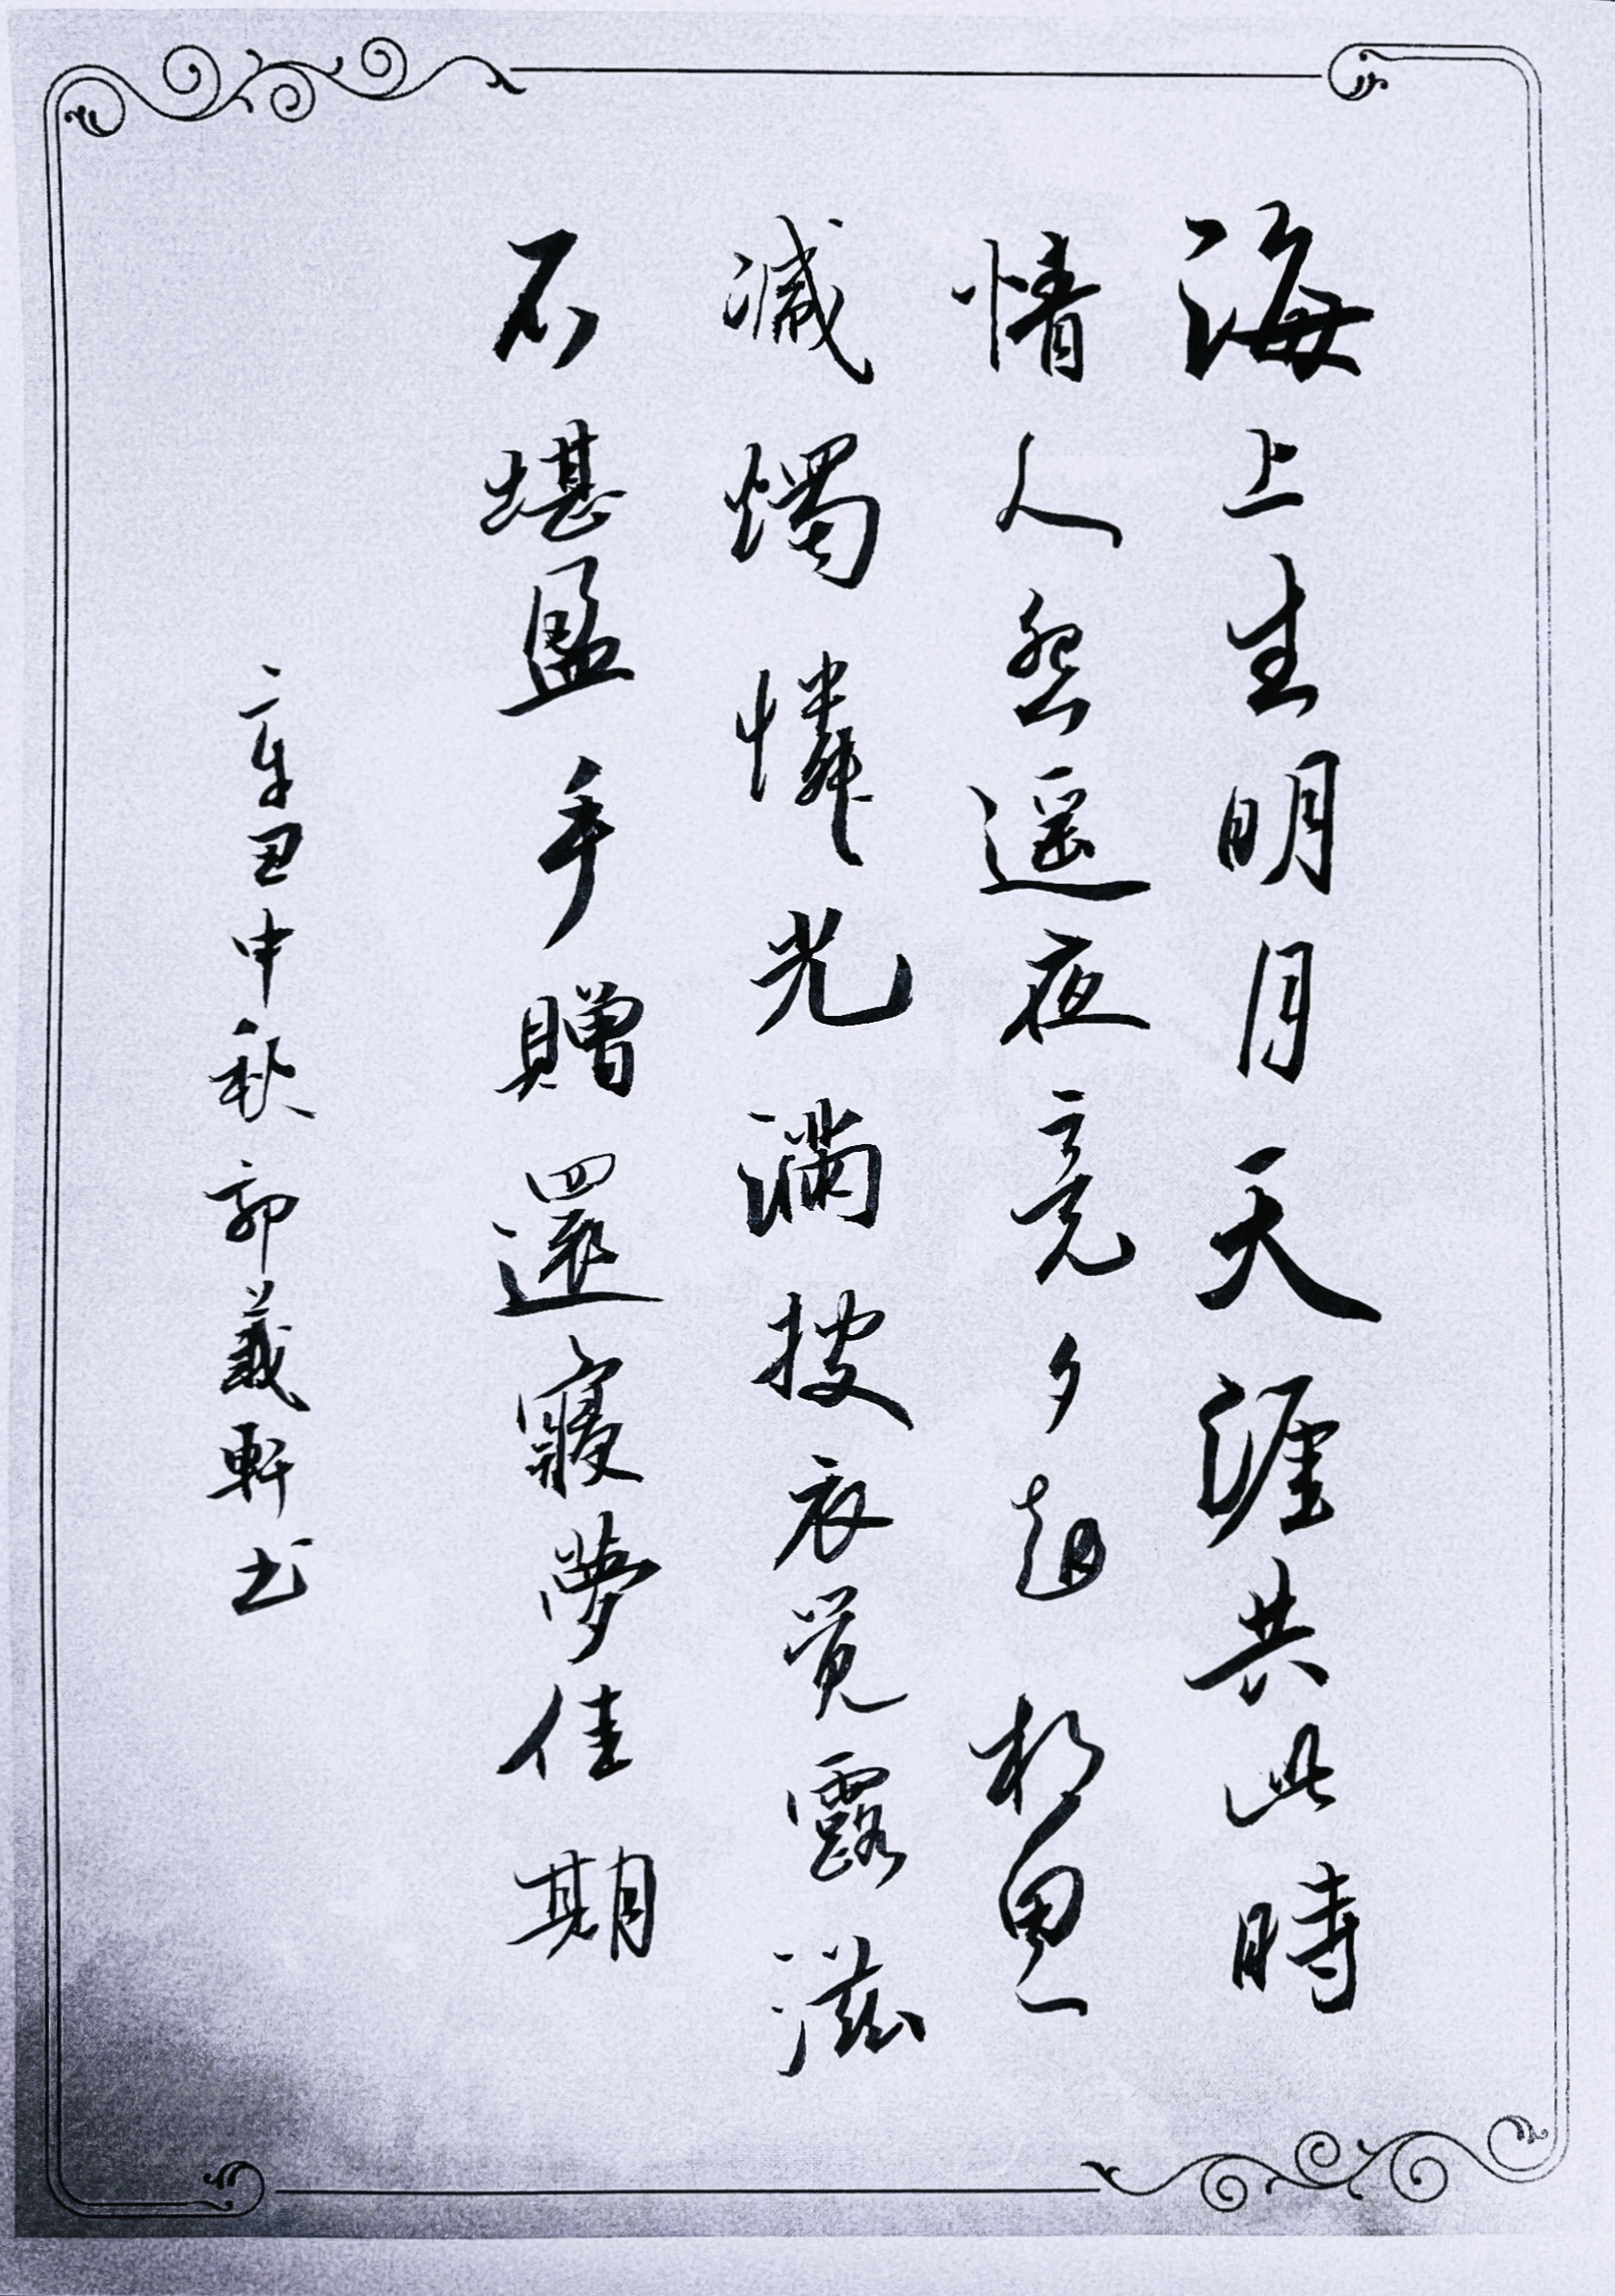 海上生明月天涯共此時
情人怨遥夜竟夕起相思
減燭憐光滿披衣覚露滋
不堪盈手贈還寢夢佳期
辛丑中秋郭義軒书